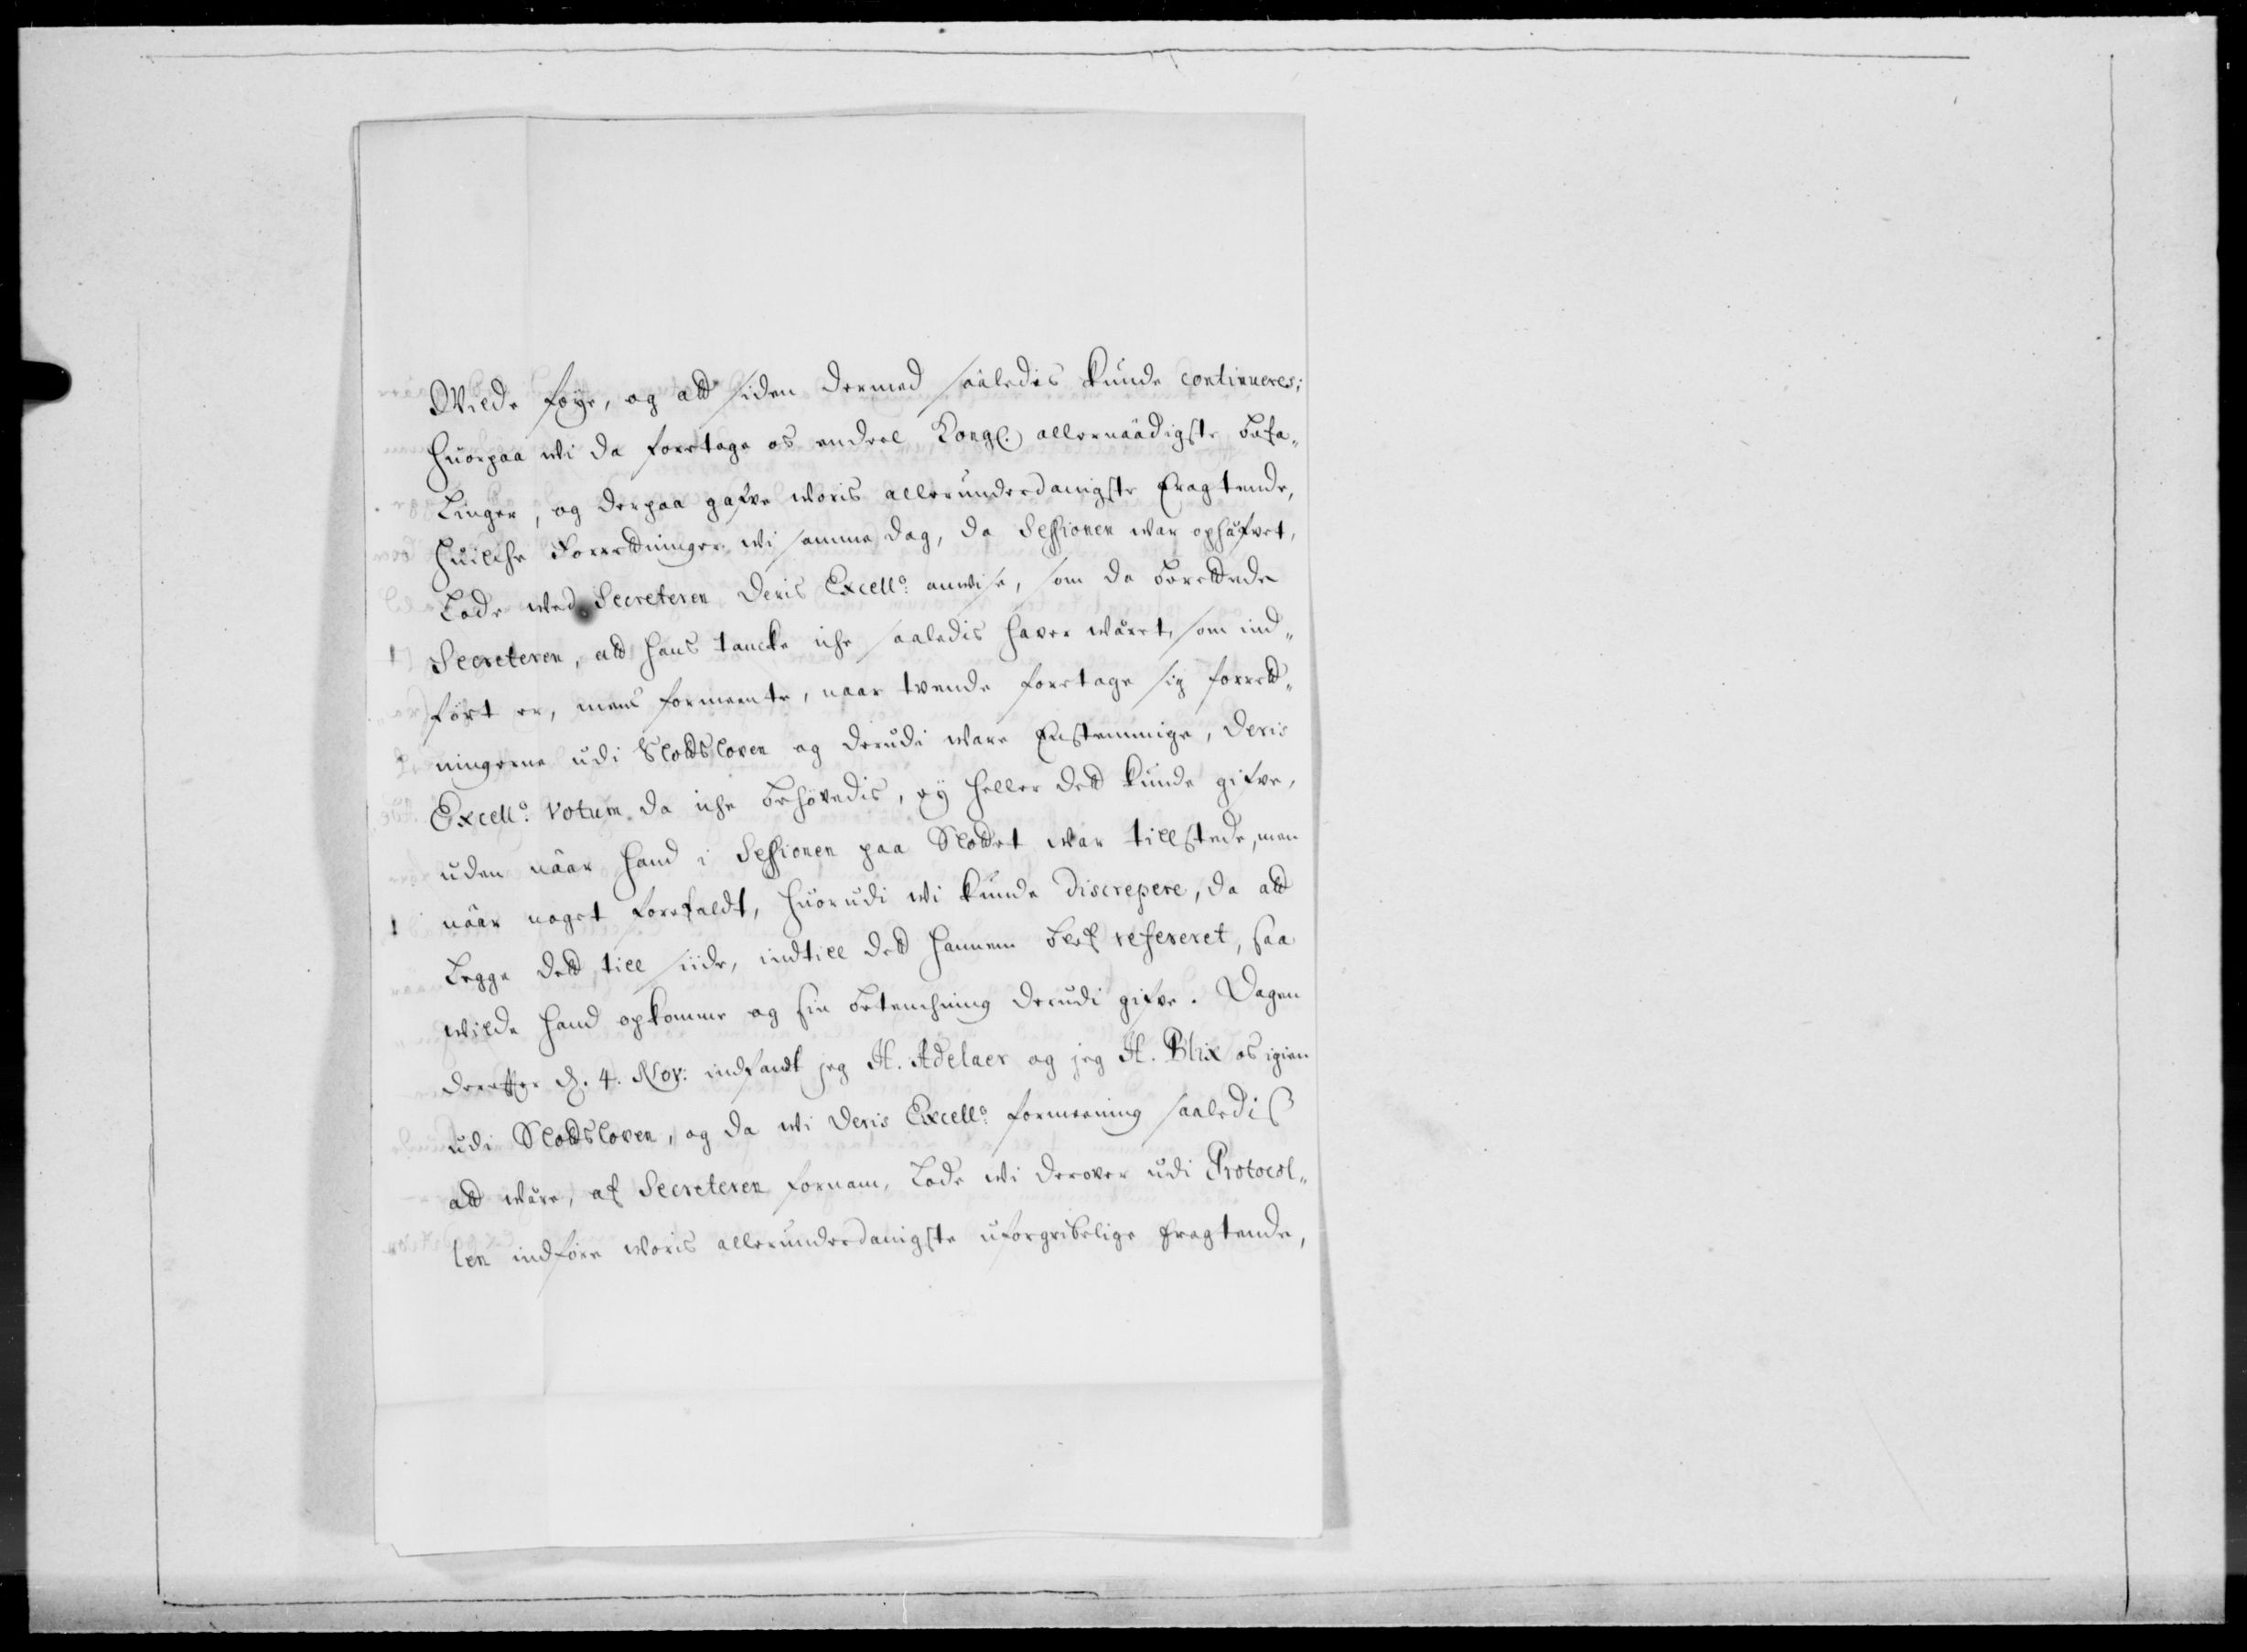 Wilde føye, og att siden dermed saaledis kunde continueres;
huorpaa wi da foretage os endeel Kongl. allernaadigste Befa„
linger, og derpaa gafve woris allerunderdanigste Eragtende,
huilche Forretninger wi samme dag, da Sessionen war ophäfvet,
lode wed Secreteren Deris Excell: anwise, som da berettede
Secreteren, att hans tancke iche saaledis haver wäret, som ind„
ført er, mens formeente, naar tvende foretage sig forrett„
ningerne udi Slodsloven og derudi ware Enstemmige, Deris
Excell: votum da iche behövedis, ey heller dett kunde gifve,
uden näar hand i Sessionen paa Slottet war tillstede, men
näar noget forefaldt, huorudi wi kunde discrepere, da att
legge dett till siide, indtill dett hannem blef refereret, saa
wilde hand opkomme og sin betenchning derudi gifve. Dagen
derefter d. 4. Nov: indfandt jeg H. Adelaer og jeg H. Blix os igien
udi Slodsloven, og da wi Deris Excell: formeening saaledis
att wäre, af Secreteren fornam, lode wi derover udi Protocol„
len indføre woris allerunderdanigste uforgribelige Eragtende,